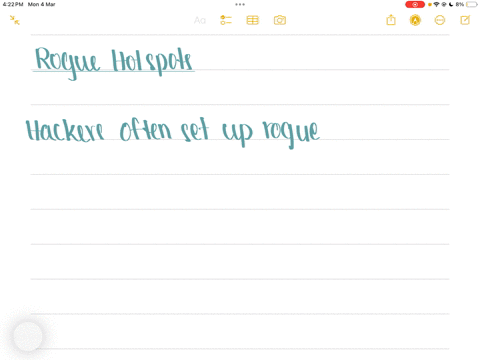 4:22 PM Mon 4 Mar 8%
Aa
Rogue Hotspots
Hackers often set up rogue